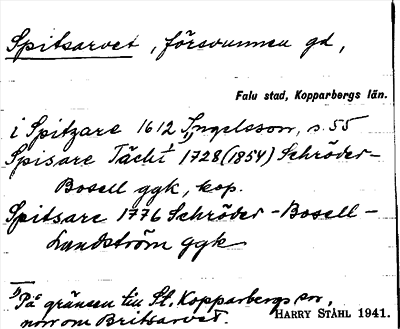 Spitsarvet, försvunnen gd,
Falu stad, Kopparbergs län.
i Spitzare 1612 Ingelsson, s. 55
Spisare Täckt 1) 1728 (1854) Schröder-
Bosell ggk, kop.
Spitsare 1776 Schröder-Bosell-
Landström ggk
1) På gränsen till St. Kopparbergs sn,
norr om Britsarvet.
HARRY STÅHL 1941.